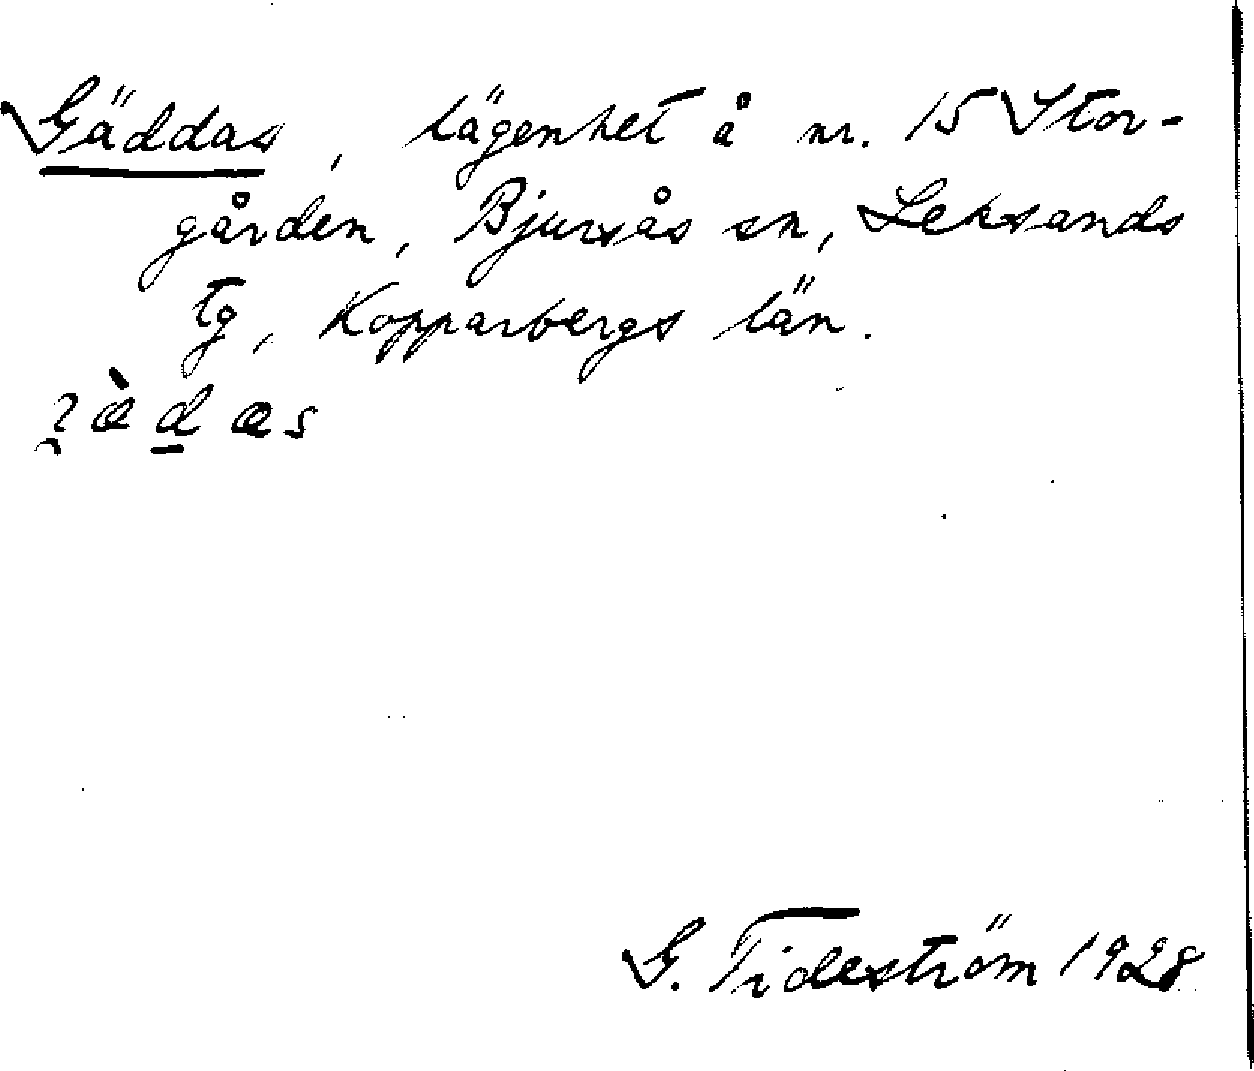 Gäddas, lägenhet å nr. 15 Stor-
gården, Bjursås sn, Leksands
tg, Kopparbergs län.
G. Tideström 1928